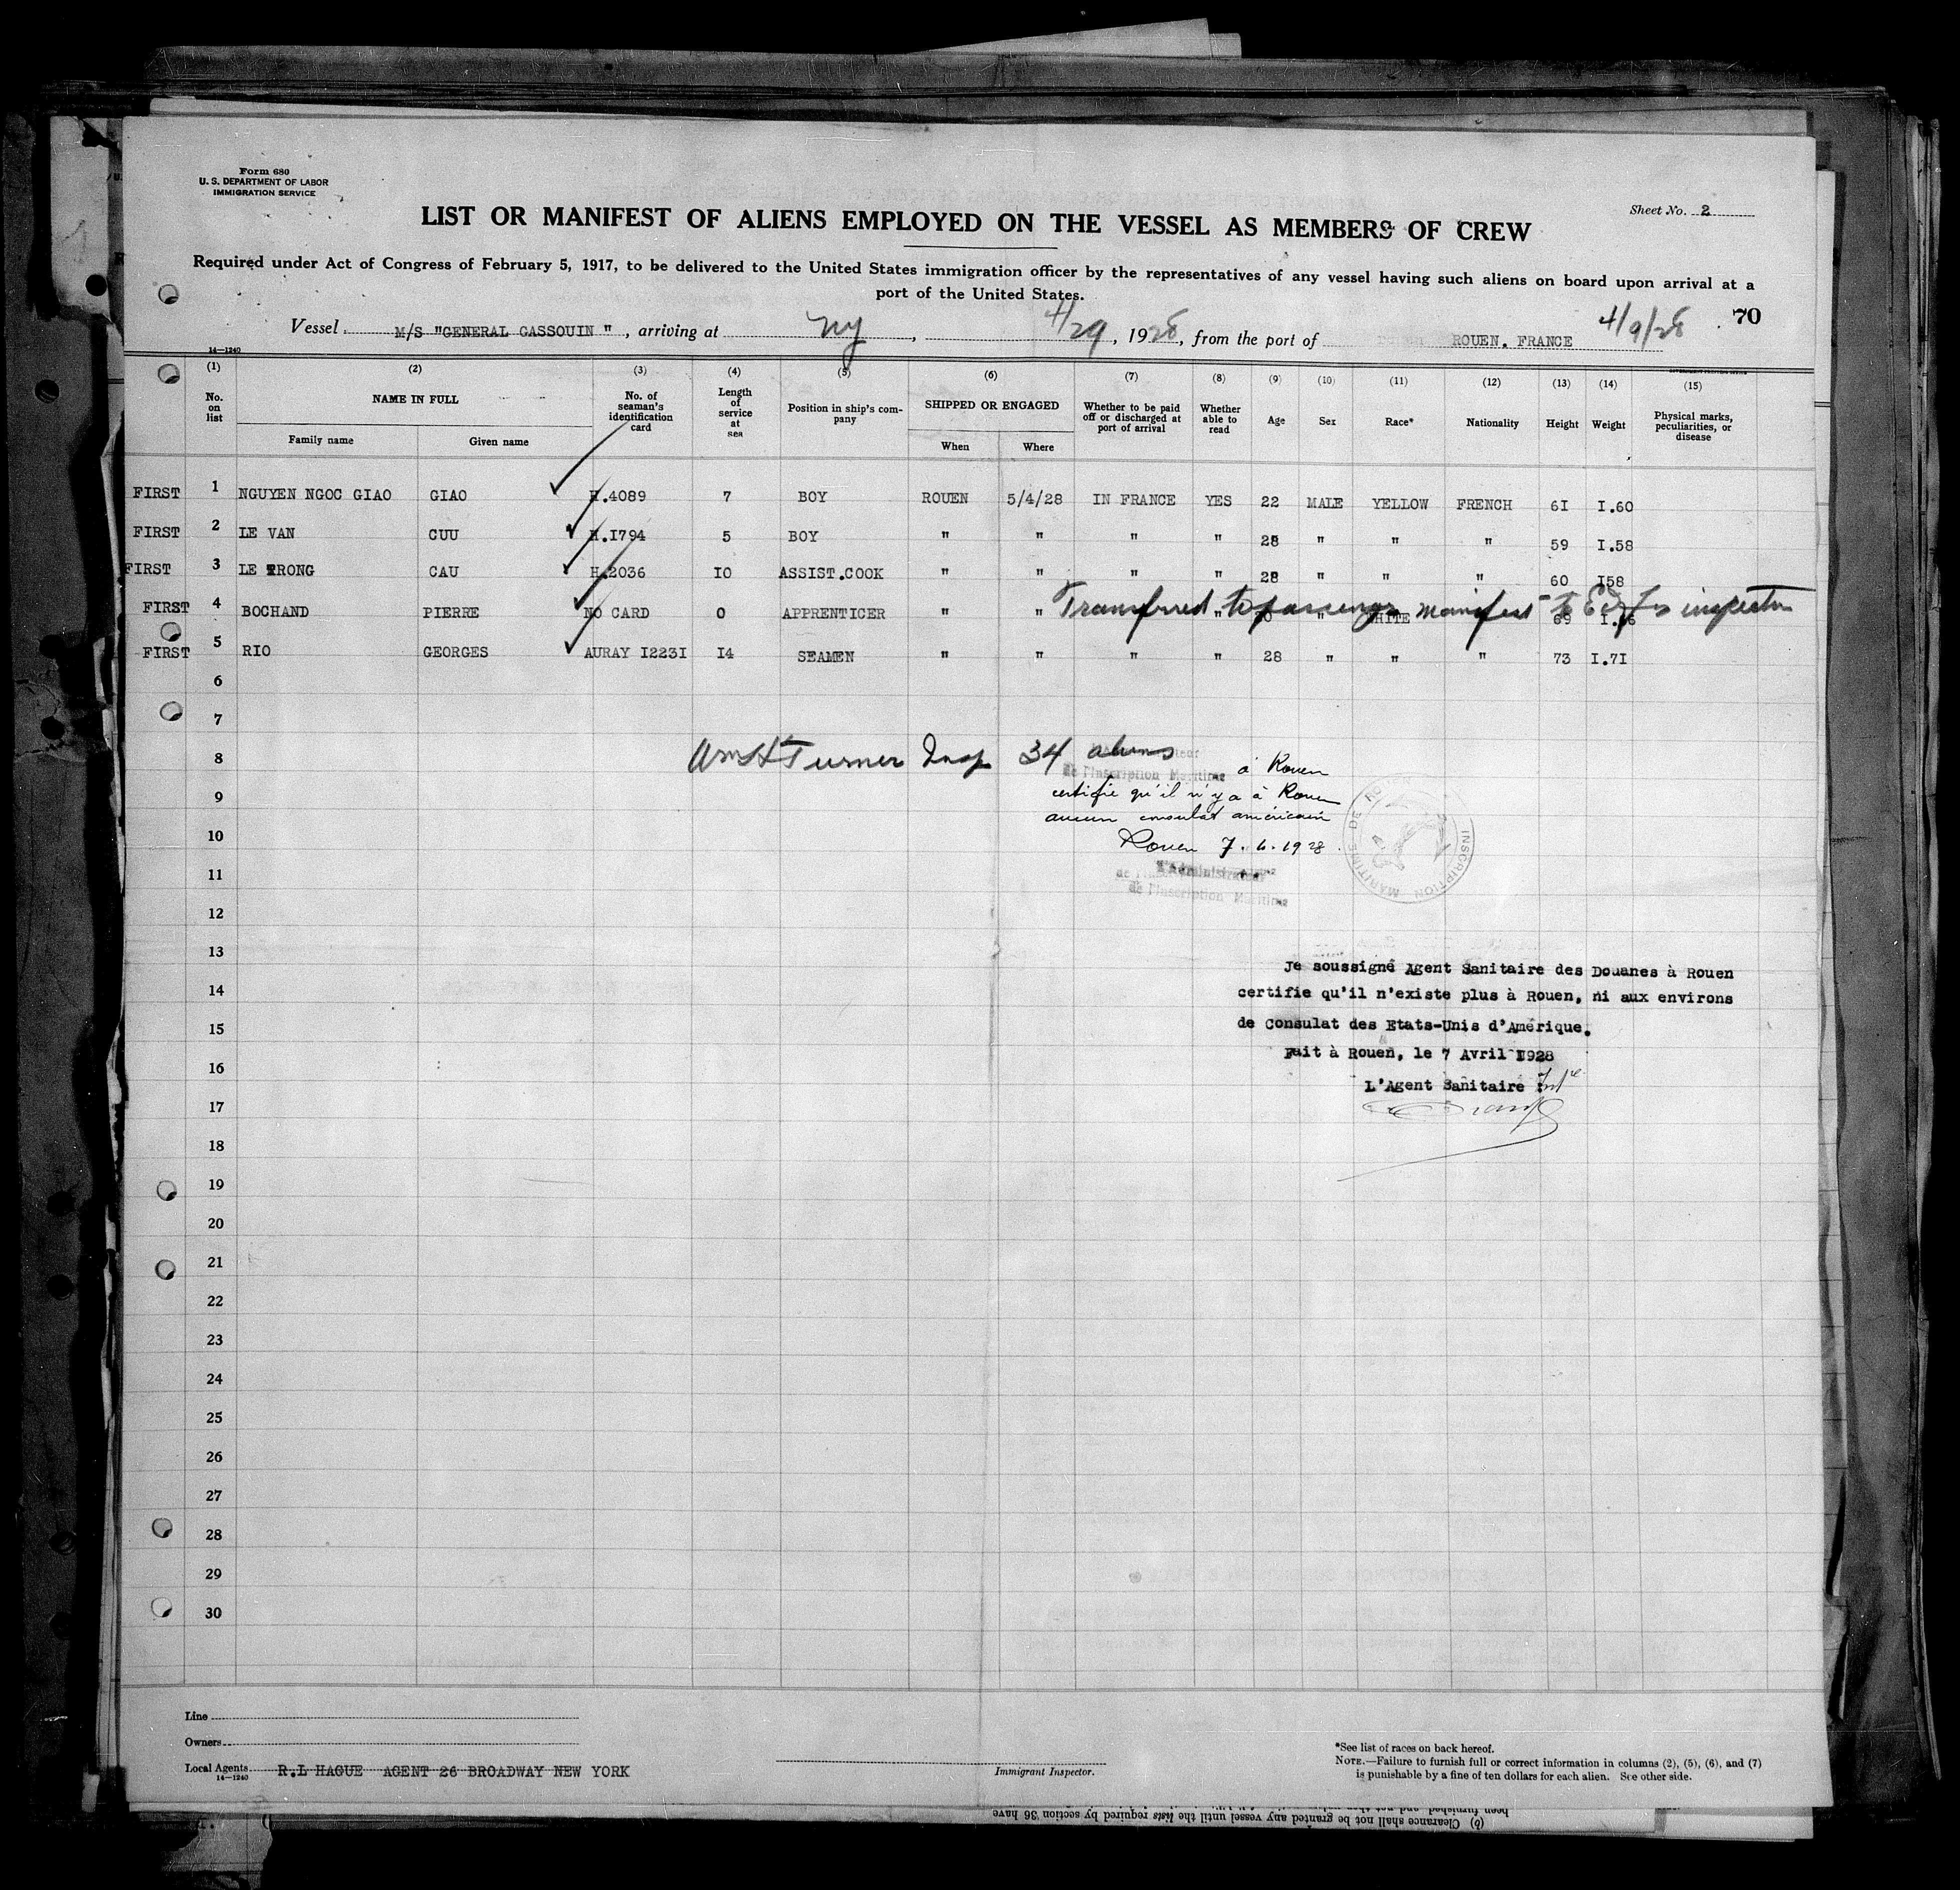 Form 680
U. S. DEPARTMENT OF LABOR
IMMIGRATION SERVICE
Sheet No. 2
LIST OR MANIFEST OF ALIENS EMPLOYED ON THE VESSEL AS MEMBERS OF CREW
Required under Act of Congress of February 5, 1917, to be delivered to the United States immigration officer by the representatives of any vessel having such aliens on board upon arrival at a
port of the United States.
70
Vessel M/S "GENERAL GASSOUIN ", arriving at NY, 4/29, 1928, from the port of ROUEN. FRANCE 4/9/28
14—1240
(1) (2) (3) (4) (5) (6) (7) (8) (9) (10) (11) (12) (13) (14) (15)
No. on list NAME IN FULL Family name Given name No. of seaman's identification card Length of service at sea Position in ship's company SHIPPED OR ENGAGED When Where Whether to be paid off or discharged at port of arrival Whether able to read Age Sex Race* Nationality Height Weight Physical marks, peculiarities, or disease
FIRST 1 NGUYEN NGOC GIAO GIAO H.4089 7 BOY ROUEN 5/4/28 IN FRANCE YES 22 MALE YELLOW FRENCH 6I I.60
FIRST 2 LE VAN CUU H.I794 5 BOY " " " " 28 " " " 59 I.58
FIRST 3 LE TRONG CAU H.2036 IO ASSIST.COOK " " " " 28 " " " 60 I58
FIRST 4 BOCHAND PIERRE NO CARD 0 APPRENTICER " " " " WHITE 69
Transferred to passenger manifest to for inspection
FIRST 5 RIO GEORGES AURAY I223I I4 SEAMEN " " " " 28 " " " 73 I.7I
6
7
8
9
10
11
12
13
14
15
16
17
18
19
20
21
22
23
24
25
26
27
28
29
30
Wm H Turner Insp 34 aliens
de l'Inscription Maritime à Rouen
certifie qu'il n'y a à Rouen
aucun consulat américain
Rouen 7.4.1928.
L'Administrateur
de l'Inscription Maritime
INSCRIPTION MARITIME DE
Je soussigné Agent Sanitaire des Douanes à Rouen
certifie qu'il n'existe plus à Rouen, ni aux environs
de Consulat des Etats-Unis d'Amérique.
Fait à Rouen, le 7 Avril I928
L'Agent Sanitaire
Line
Owners
Local Agents R.L HAGUE AGENT 26 BROADWAY NEW YORK
14—1240
Immigrant Inspector.
*See list of races on back hereof.
NOTE.—Failure to furnish full or correct information in columns (2), (5), (6), and (7)
is punishable by a fine of ten dollars for each alien. See other side.
(b) Clearance shall not be granted any vessel until the lists required by section 36 have